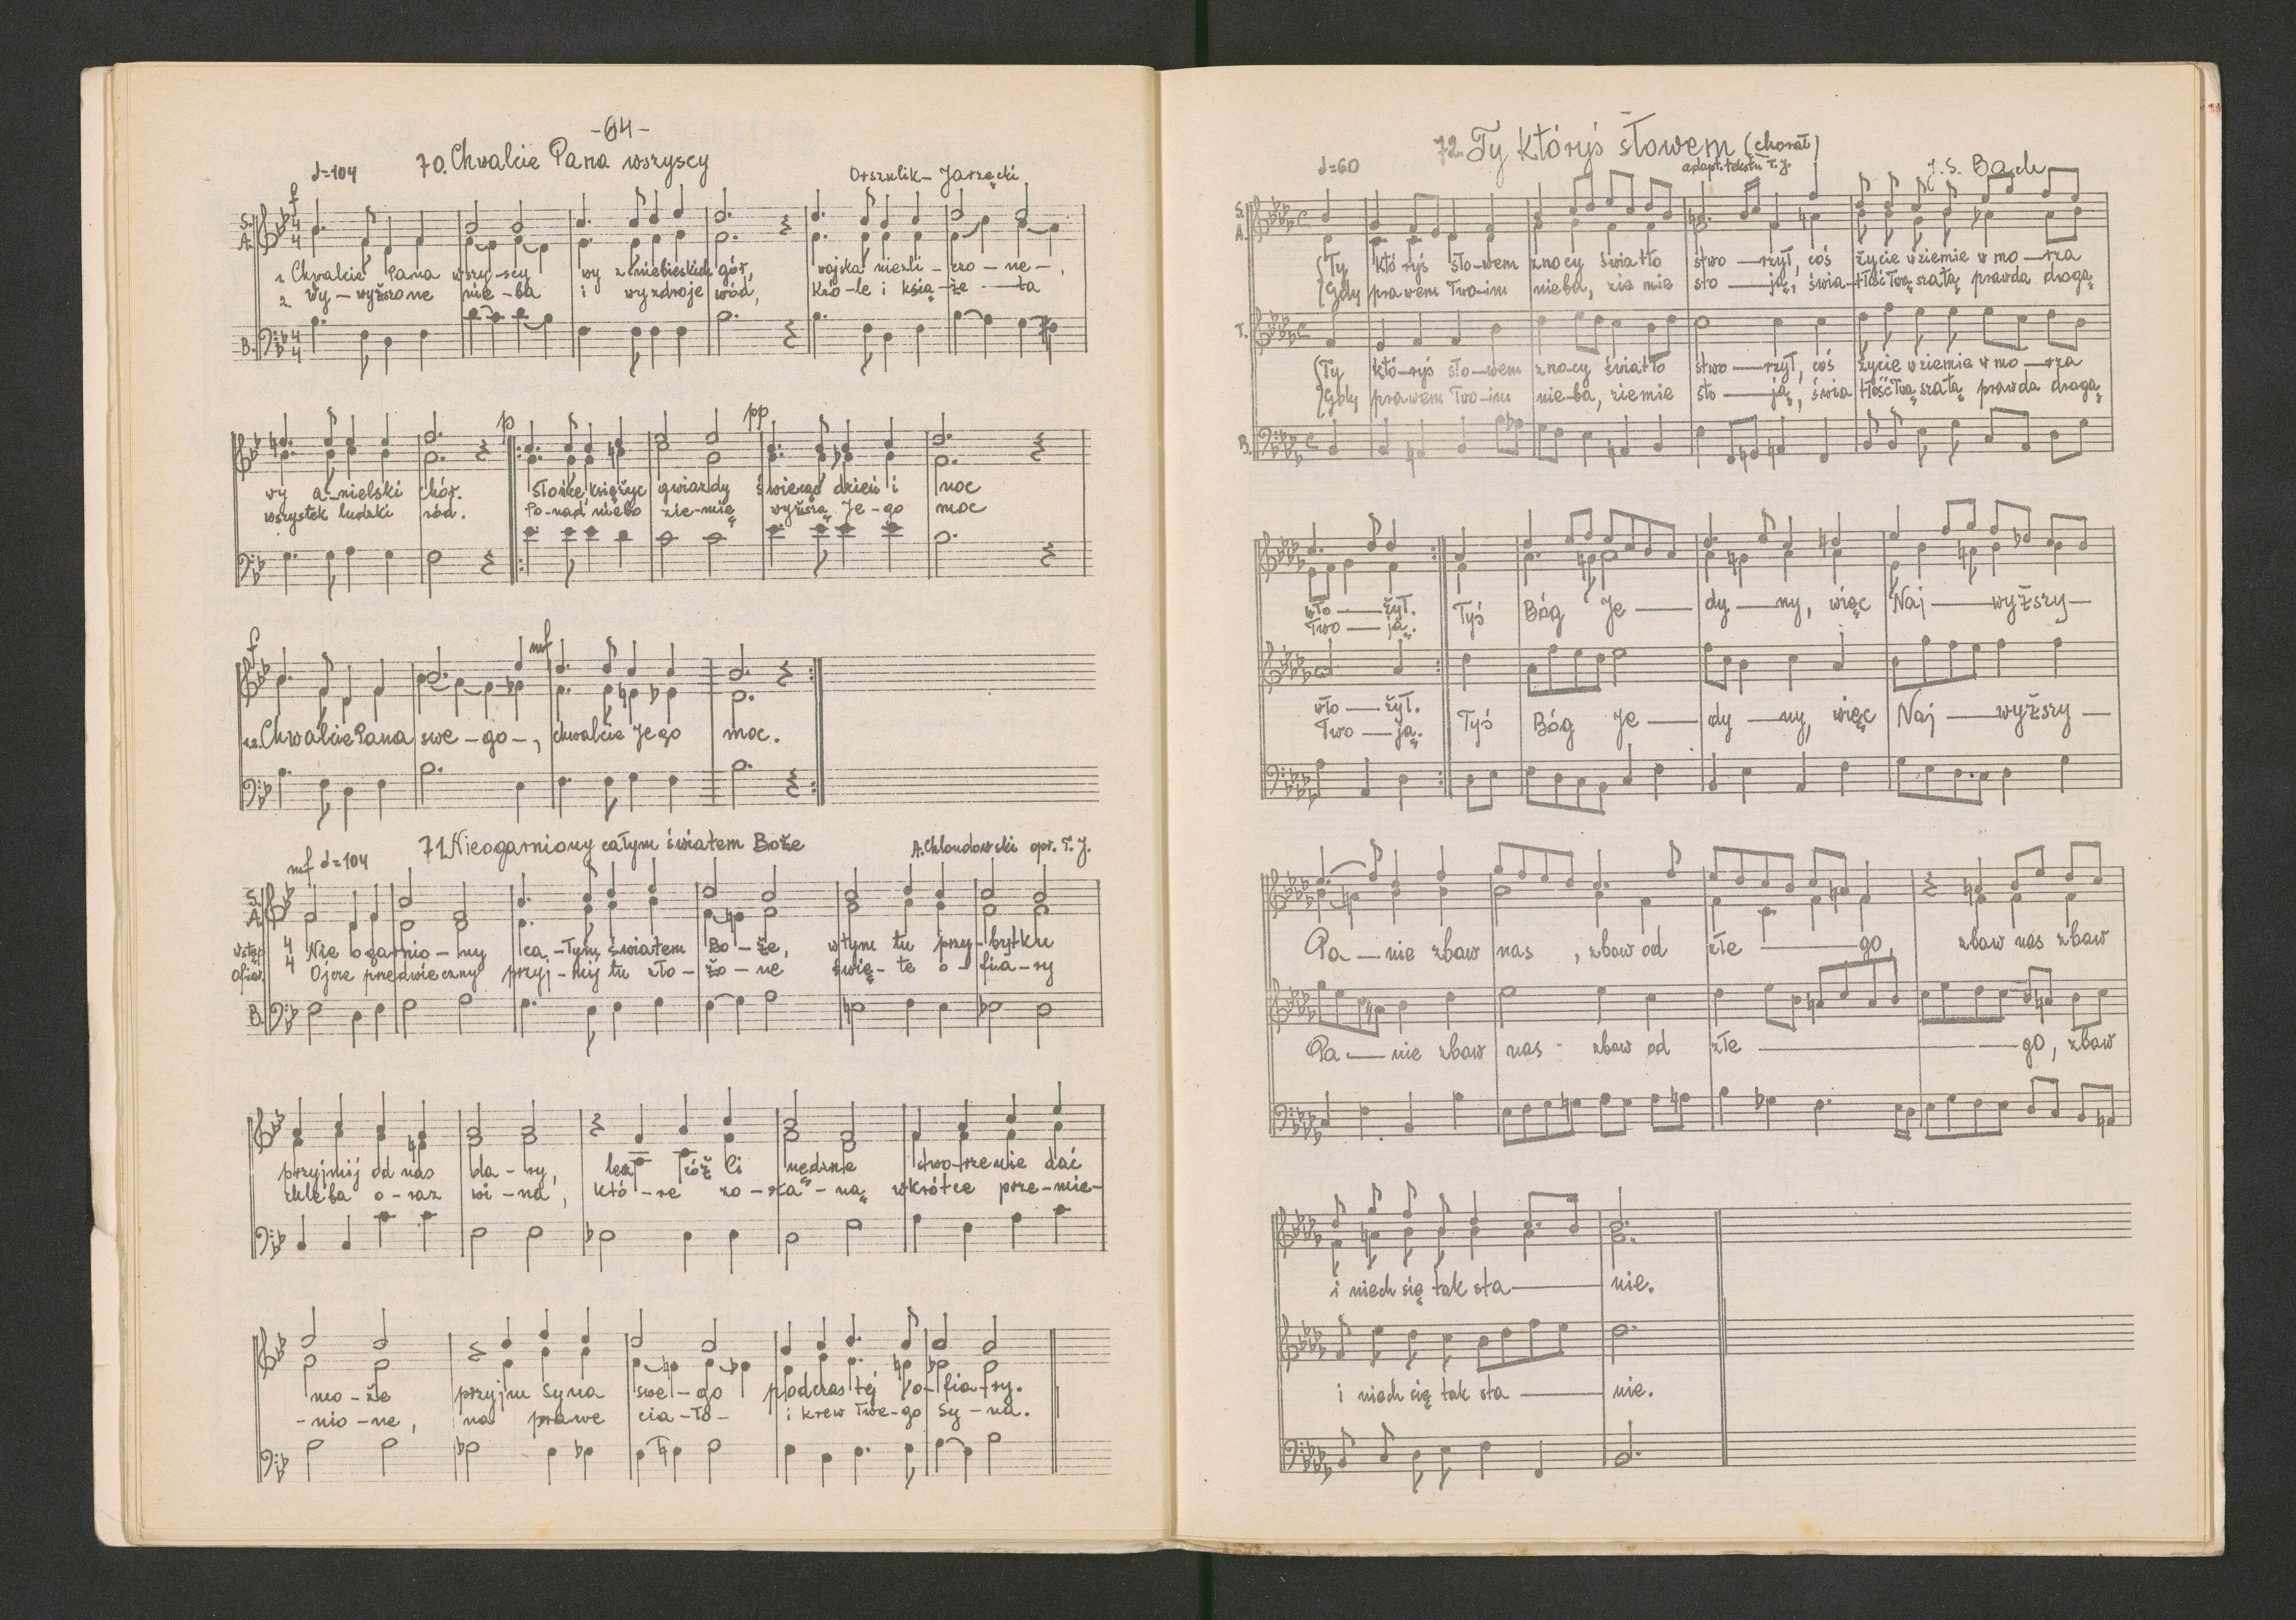 -64-
70. Chwalcie Pana wszyscy
♩=104
Orszulik - Jarzęcki
f
S.
A.
4
4
1. Chwalcie Pana wszy-scy wy z niebieskich gór, wojska niezli-czo-ne-,
2. Wy-wyższone nie-ba i wy zdroje wód, Kró-le i ksią-żę-ta
B.
4
4
p
pp
wy a-nielski chór. Słońce, księżyc gwiazdy świecąc dzień i noc
wszystek ludzki ród. Po-nad niebo zie-mię wyższą Je-go moc
f
mf
Chwalcie Pana swe-go-, chwalcie Jego moc.
71. Nieogarniony całym światem Boże
mf ♩=104
A. Chlondowski opr. T. J.
S.
A.
4
4
Wstęp Nie ogarnio-ny ca-łym światem Bo-że, w tym tu przy-bytku
Ofiar. Ojcze przedwieczny przyj-mij tu zło-żo-ne świę-te o-fia-ry
B.
przyjmij od nas da-ry, lecz cóż Ci nędzne stwo-rzenie dać
chleba o-raz wi-na, któ-re zo-sta-ną wkrótce prze-mie-
mo-że przyjm Syna swe-go podczas tej o-fia-ry.
-nio-ne, na prawe cia-ło- i krew Twe-go Sy-na.
72. Ty któryś słowem (chorał)
♩=60
adapt. tekstu T. J.
J. S. Bach
S.
A.
Ty któ ryś sło-wem z nocy światło stwo-rzył, coś życie w ziemie w mo-rza
Gdy prawem Two-im nieba, zie mie sto-ją, świa-tłość Twą szatą prawda drogą
T.
Ty któ-ryś sło-wem z no-cy światło stwo-rzył, coś życie w ziemie w mo-rza
Gdy prawem Two-im nie-ba, ziemie sto-ją, świa tłość Twą szatą prawda drogą
B.
wło-żył. Tyś Bóg Je-dy-ny, więc Naj-wyższy-
Two-ją.
wło-żył. Tyś Bóg Je-dy-ny, więc Naj-wyższy-
Two-ją.
Pa-nie zbaw nas, zbaw od złe-go, zbaw nas zbaw
Pa-nie zbaw nas - zbaw od złe-go, zbaw
i niech się tak sta-nie.
i niech się tak sta-nie.